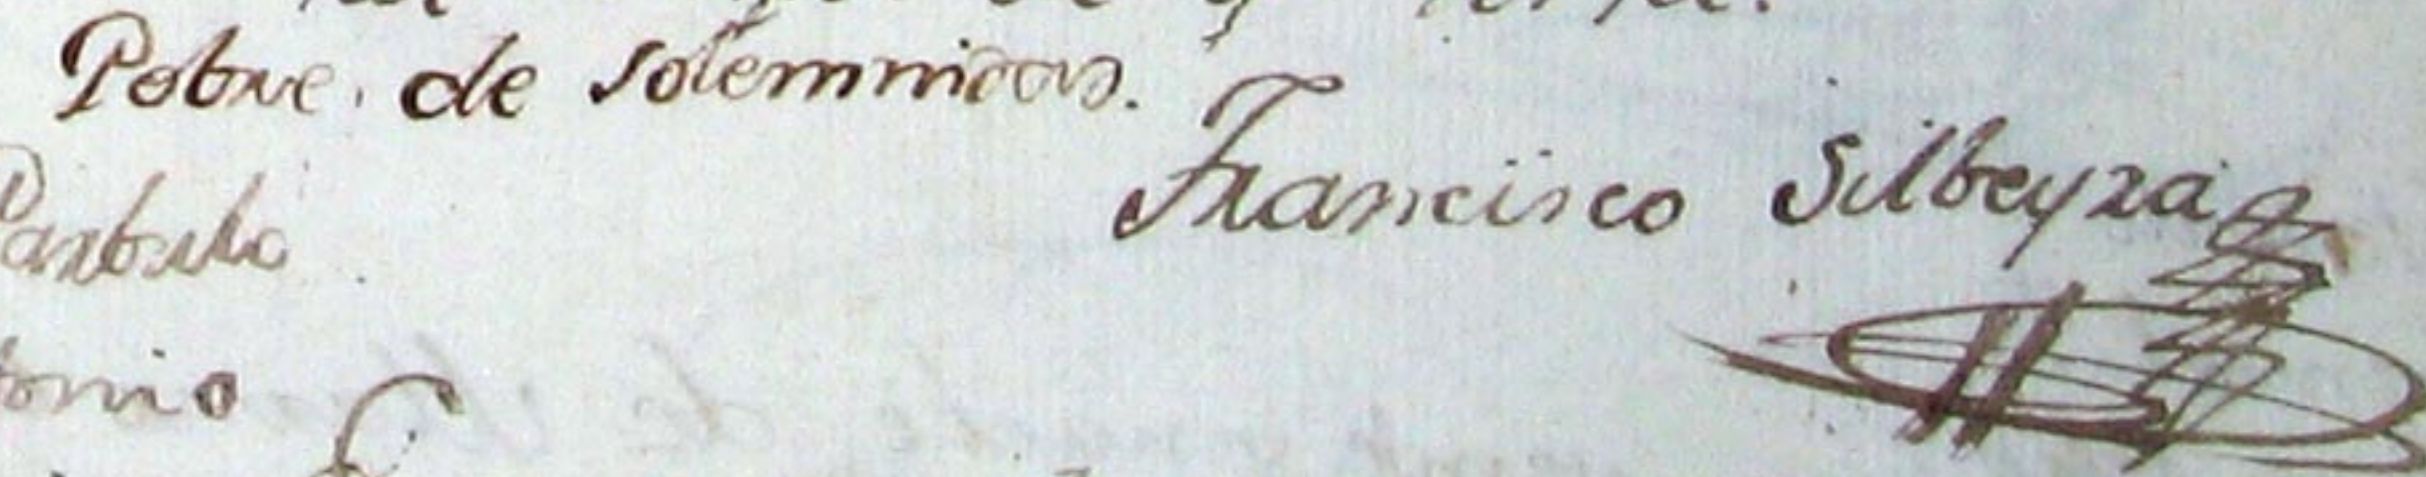 Pobre de solemnidad.
Francisco Silbeyra
Parbulo
tonio